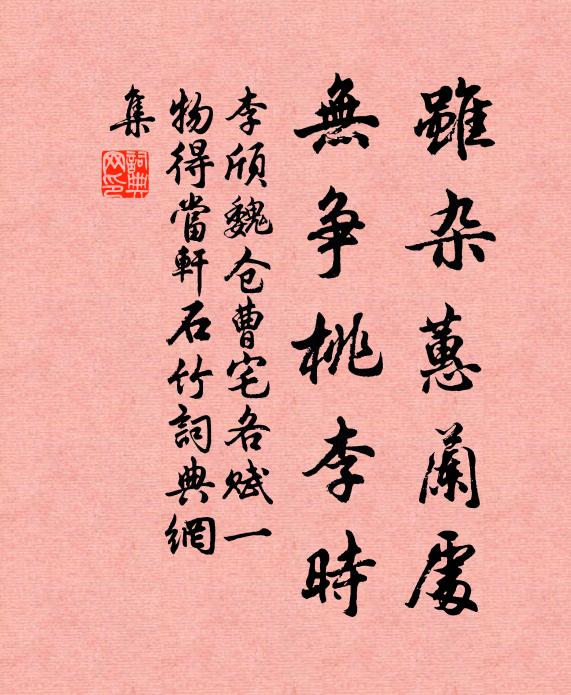 雖杂蕙蘭處
無争桃李時
李頎魏仓曹宅各赋一
物得當軒石竹詞典網
集
詞典網印